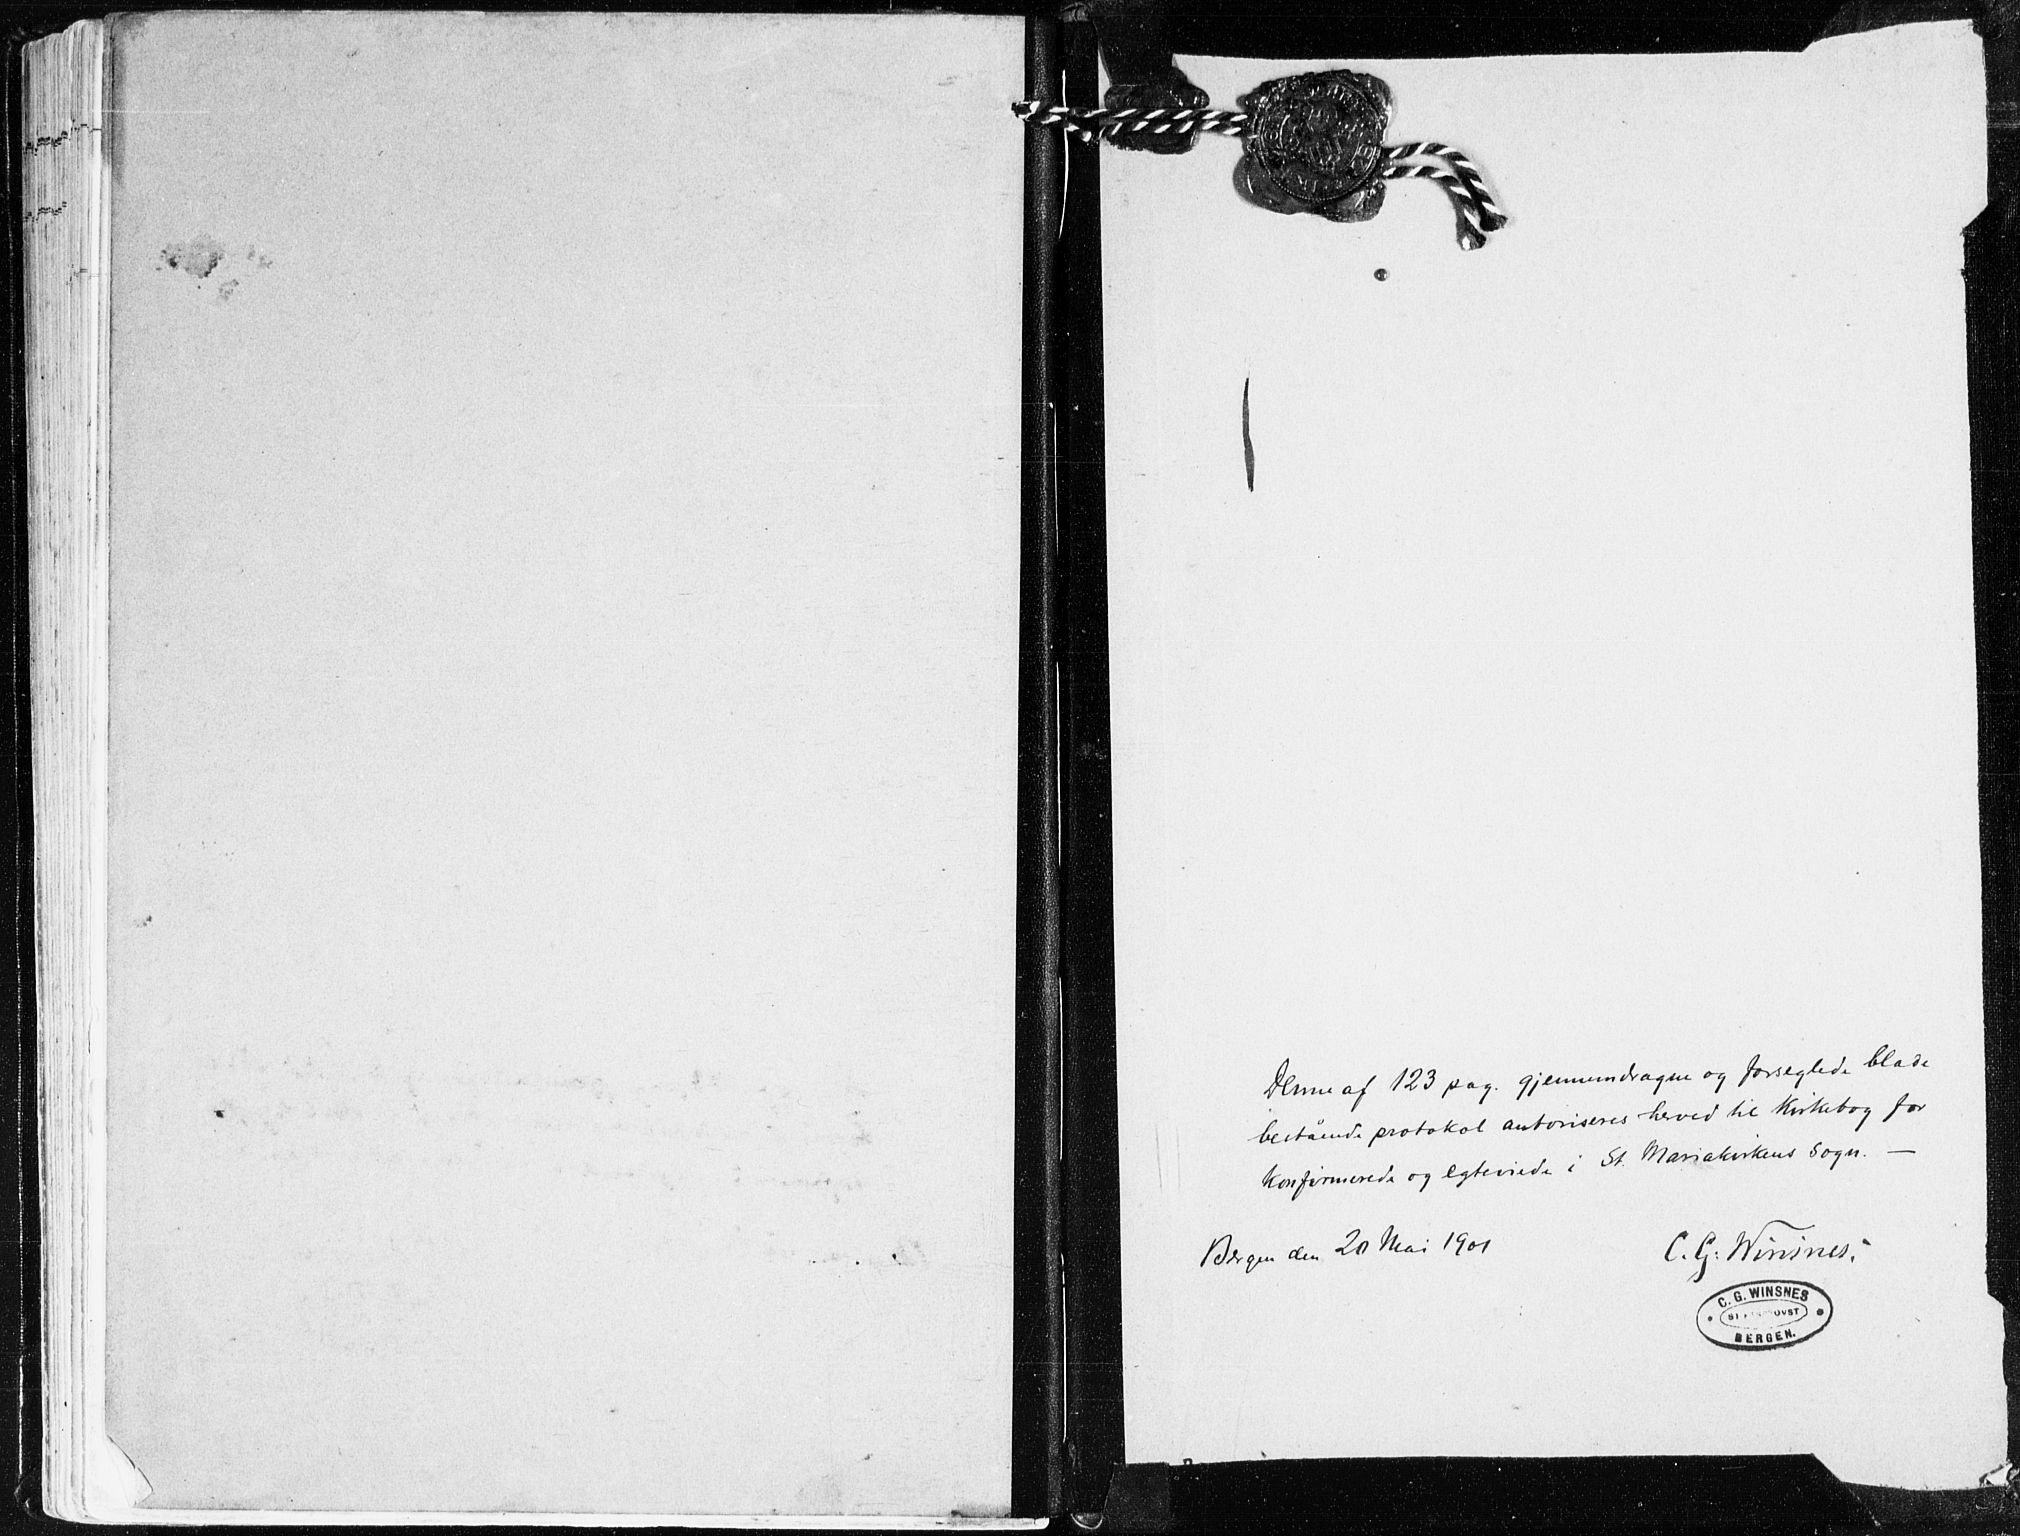 Denne af 123 pag. gjennemdragne og forseglede blade
bestående protokol autoriseres herved til Kirkebog for
konfirmerede og egteviede i St. Mariakirkens Sogn. —
Bergen den 20 Mai 1901
C. G. Winsnes.
C. G. WINSNES
BERGEN.